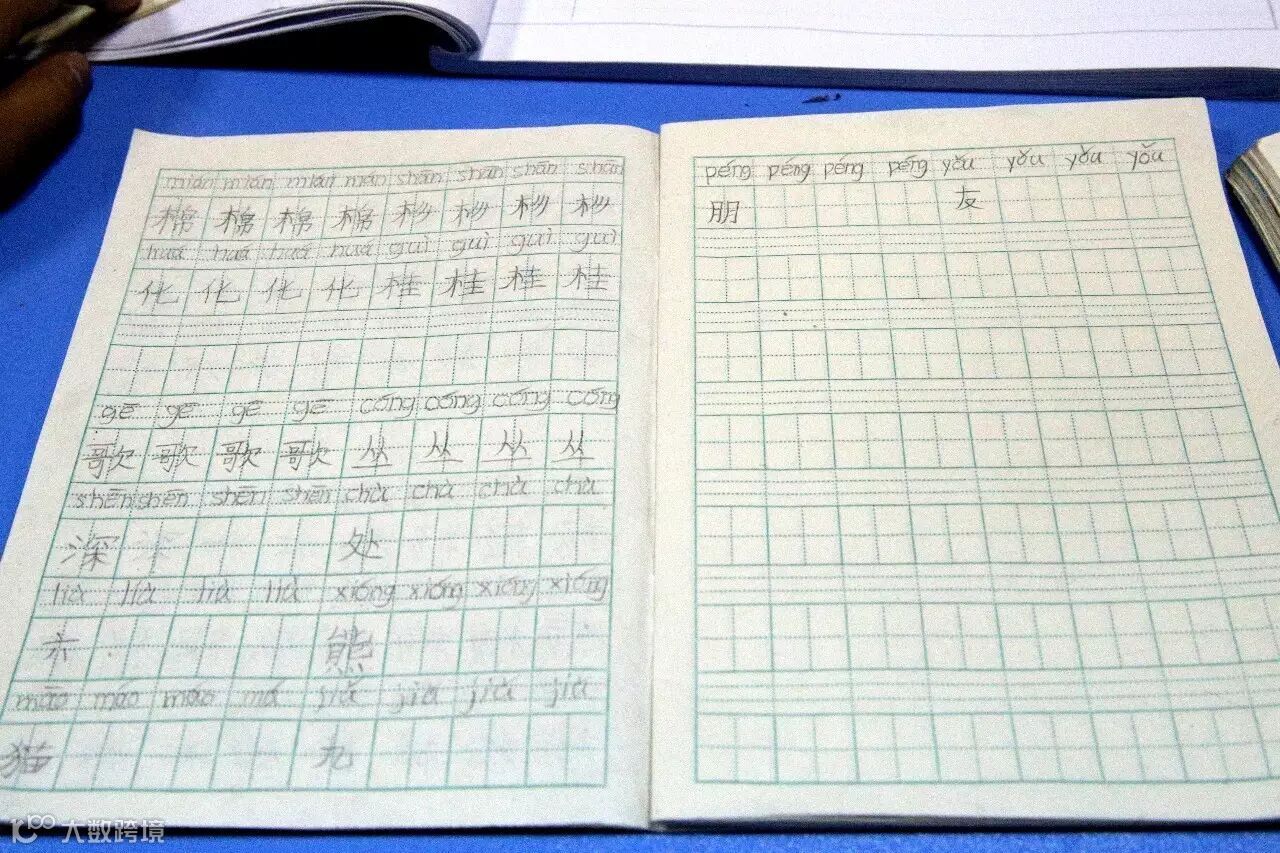 mián mián mián shān shān shān shān
棉 棉 棉 棉 杉 杉 杉 杉
huá huá huá huá guì guì guì guì
化 化 化 化 桂 桂 桂 桂
gē gē gē gē cóng cóng cóng cóng
歌 歌 歌 歌 丛 丛 丛 丛
shēn shēn shēn shēn chù chù chù chù
深 处
xióng xióng xióng xióng
六 熊
máo máo má
猫 九
péng péng péng péng yǒu yǒu yǒu yǒu
朋 友
大数跨境